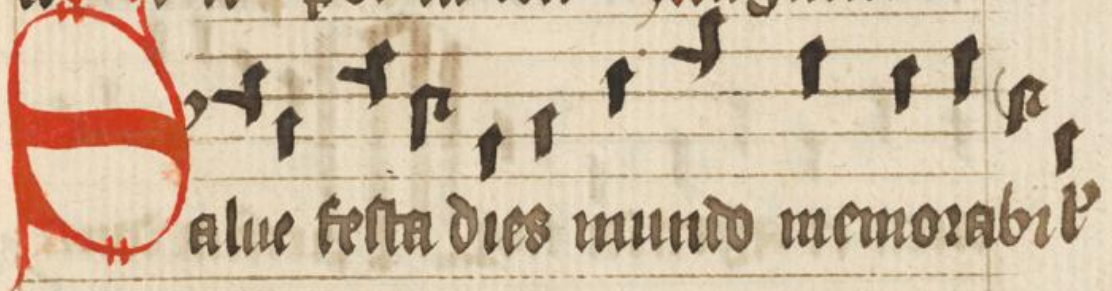 Salue festa dies mundo memorabil